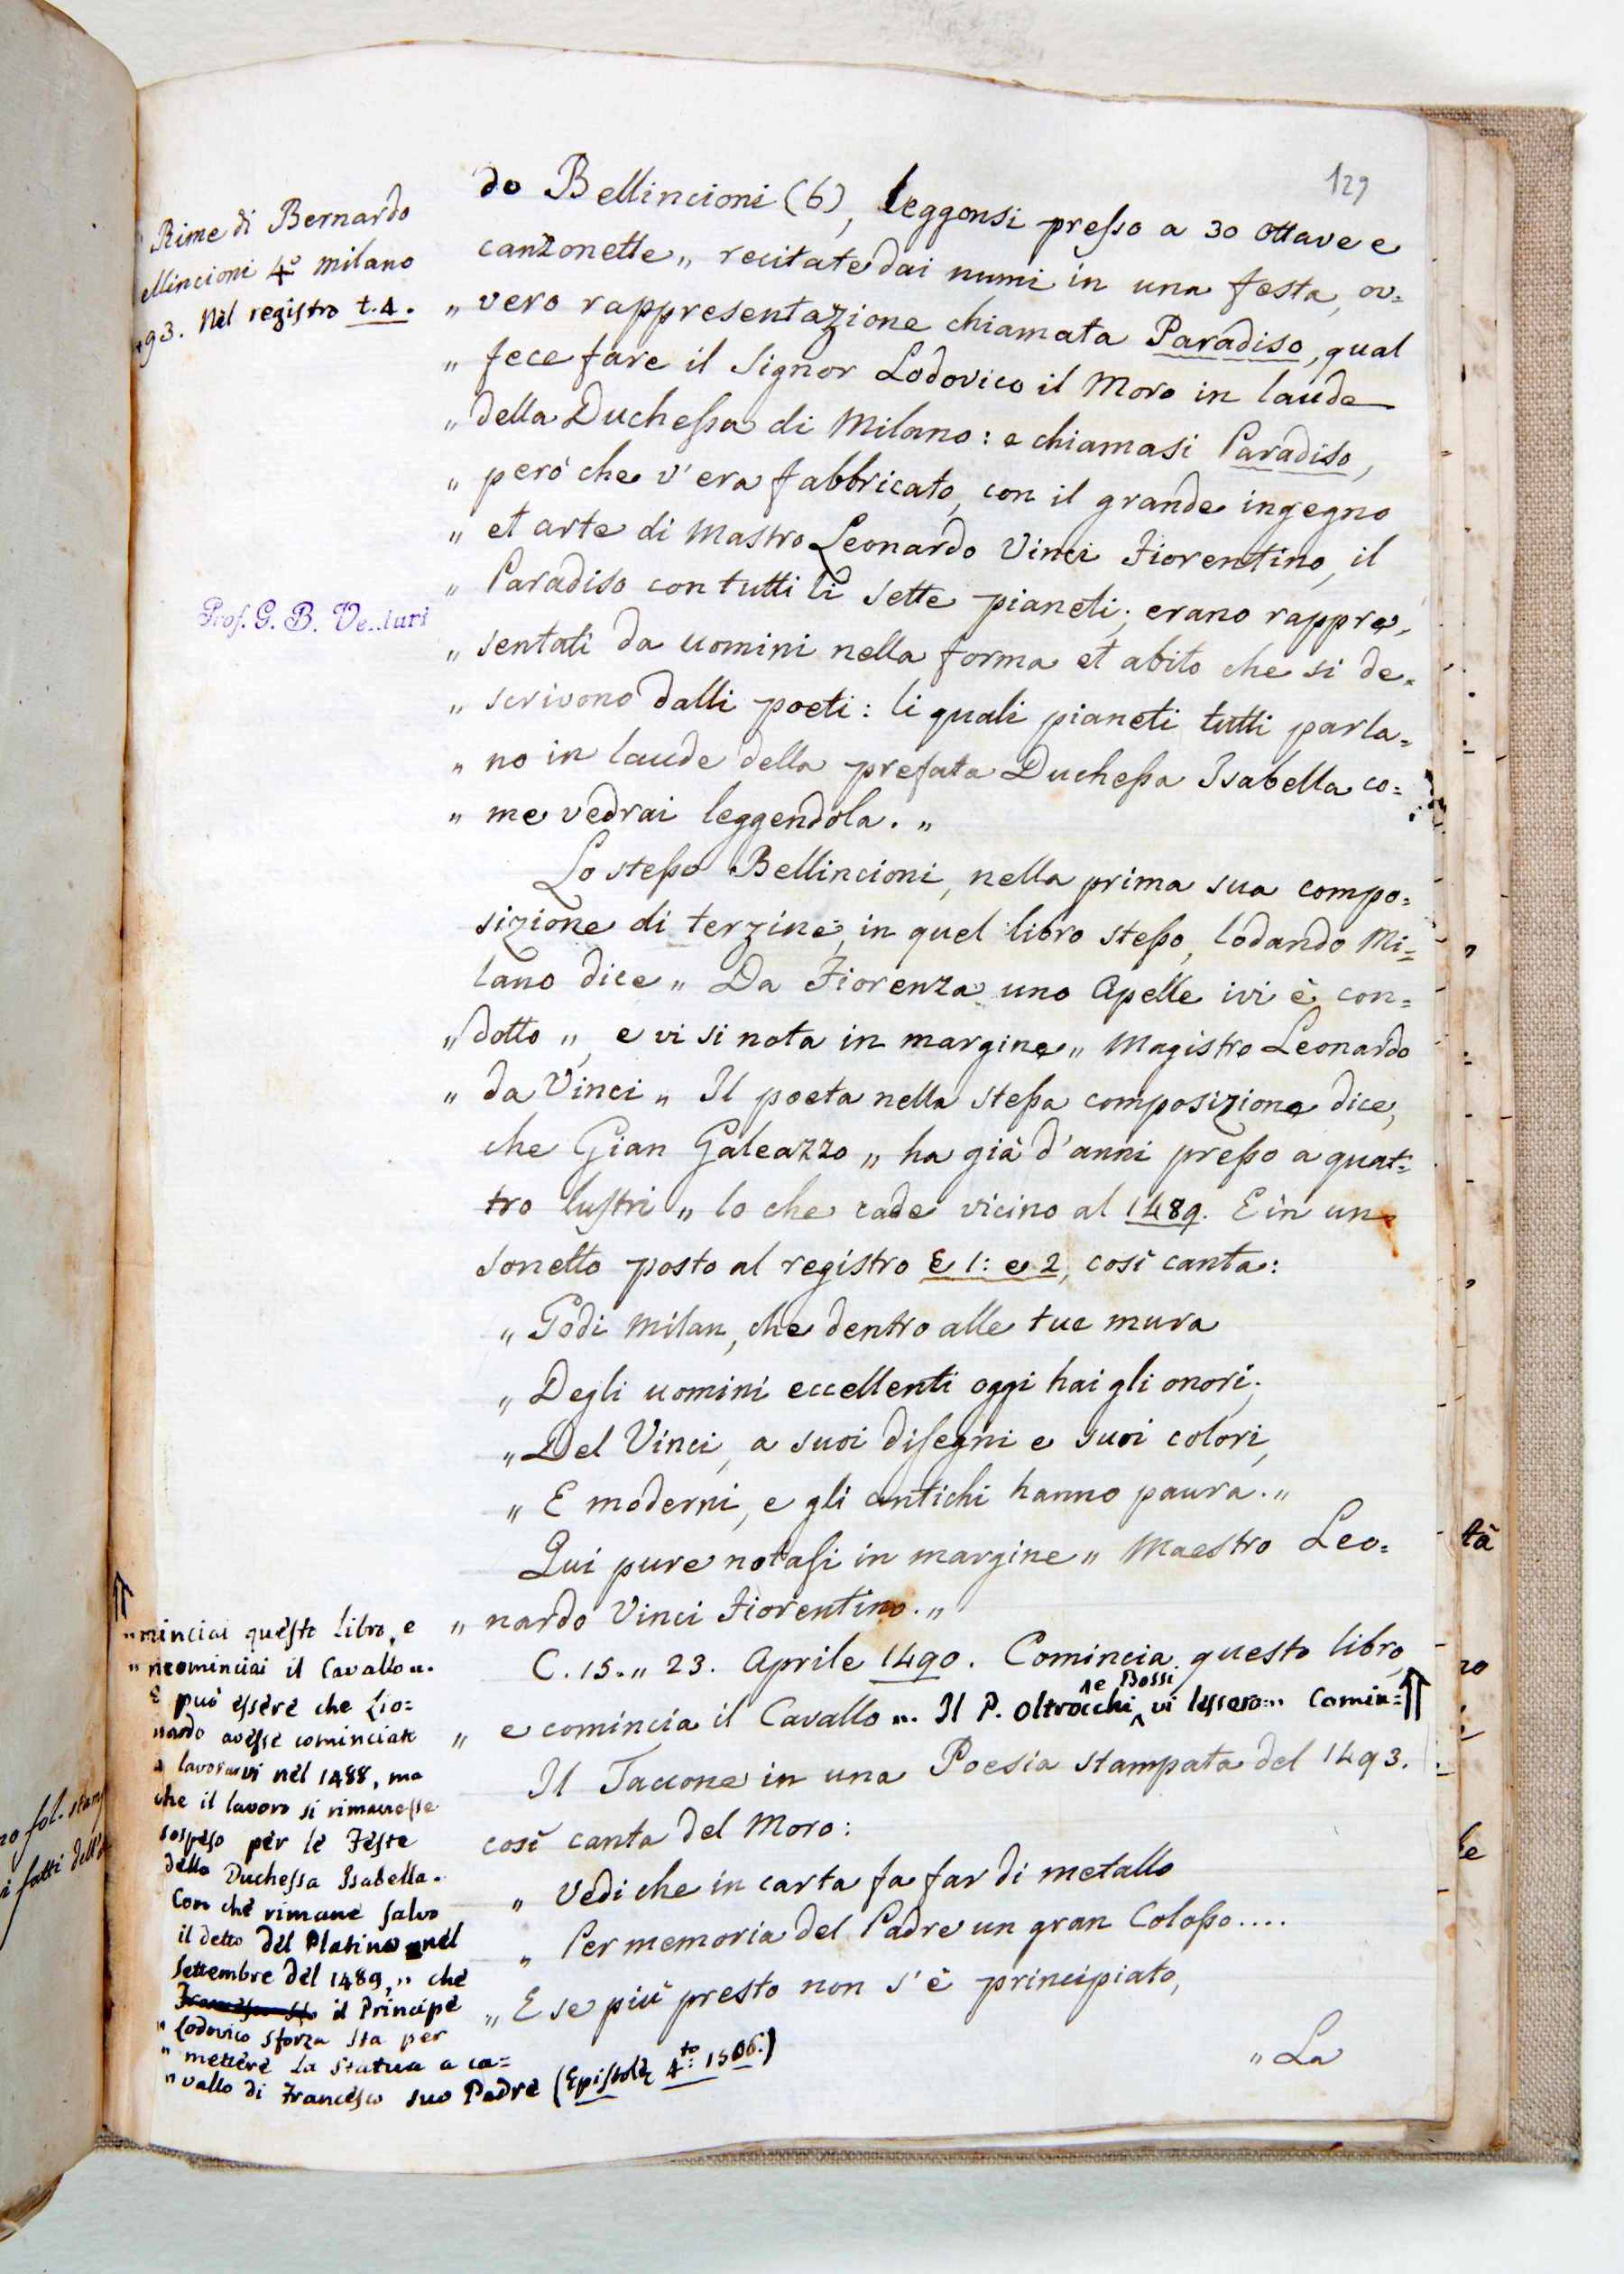 129
do Bellincioni (6), leggonsi presso a 30 ottave e
canzonette „ recitate dai numi in una festa, ov=
„ vero rappresentazione chiamata Paradiso, qual
„ fece fare il Signor Lodovico il Moro in laude
„ della Duchessa di Milano: e chiamasi Paradiso,
„ però che v'era fabbricato, con il grande ingegno
„ et arte di Mastro Leonardo Vinci Fiorentino, il
„ Paradiso con tutti li sette pianeti; erano rappre=
„ sentati da uomini nella forma et abito che si de=
„ scrivono dalli poeti: li quali pianeti tutti parla=
„ no in laude della prefata Duchessa Isabella co=
„ me vedrai leggendola. „
Lo stesso Bellincioni, nella prima sua compo=
sizione di terzine, in quel libro stesso, lodando Mi=
lano dice „ Da Fiorenza uno Apelle ivi è con=
„ dotto „, e vi si nota in margine „ Magistro Leonardo
„ da Vinci „ Il poeta nella stessa composizione dice,
che Gian Galeazzo „ ha già d'anni presso a quat=
tro lustri „ lo che cade vicino al 1489. E in un
sonetto posto al registro E 1: e 2, così canta:
„ Godi Milan, che dentro alle tue mura
„ Degli uomini eccellenti oggi hai gli onori;
„ Del Vinci, a suoi disegni e suoi colori,
„ E moderni, e gli antichi hanno paura. „
Qui pure notasi in margine „ Maestro Leo=
„ nardo Vinci Fiorentino. „
C. 15. „ 23. Aprile 1490. Comincia questo libro,
„ e comincia il Cavallo ... Il P. Oltrocchi e Bossi vi lessero „ Comin=
Il Taccone in una Poesia stampata del 1493.
così canta del Moro:
„ Vedi che in carta fa far di metallo
„ Per memoria del Padre un gran Colosso....
„ E se più presto non s'è principiato,
„ La
Rime di Bernardo
ellincioni 4º Milano
493. Nel registro t. 4.
Prof. G. B. Venturi
„ minciai questo libro, e
„ ricominciai il Cavallo „.
E può essere che Lio=
nardo avesse cominciato
a lavorarvi nel 1488, ma
che il lavoro si rimanesse
sospeso per le Feste
della Duchessa Isabella.
Con che rimane salvo
il detto del Platino nel
Settembre del 1489, „ che
il Principe
„ Lodovico Sforza sta per
„ mettere la Statua a ca=
„ vallo di Francesco suo Padre (Epistole 4to: 1506.)